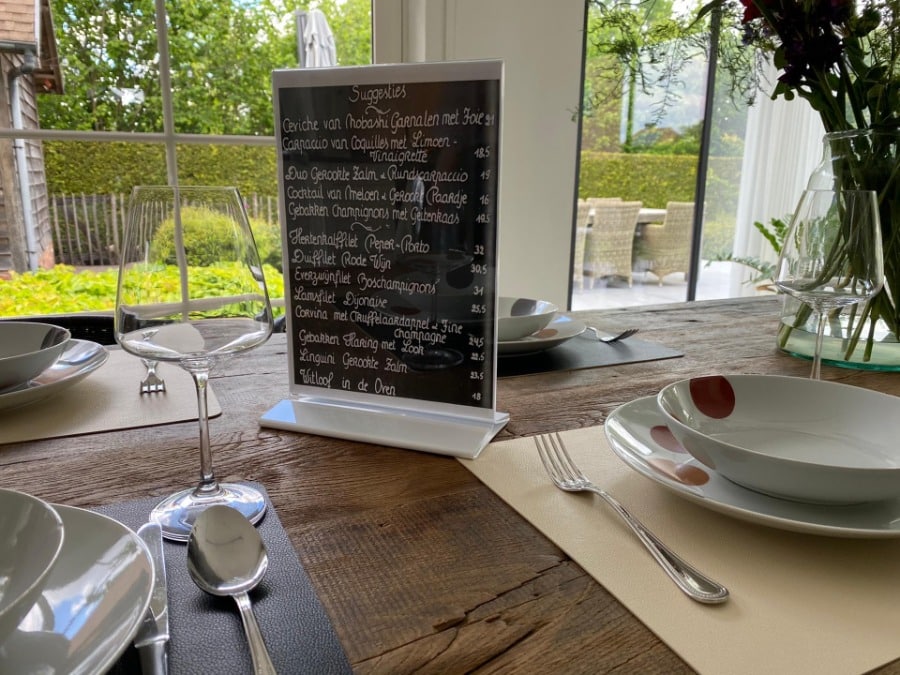 Suggesties
Ceviche van Nobashi Garnalen met Foie 21
Carpaccio van Coquilles met Limoen-
Vinaigrette 18.5
Duo Gerookte Zalm & Rundscarpaccio 19
Cocktail van Meloen & Gerookt Paardje 16
Gebakken Champignons met Geitenkaas 19.5
Hertenkalffilet Peper-Porto 32
Duiffilet Rode Wijn 30.5
Everzwijnfilet Boschampignons 31
Lamsfilet Dijonaise 25.5
Corvina met Truffelaardappel & Fine
Champagne 24.5
Gebakken Haring met Look 22.5
Linguini Gerookte Zalm 23.5
Witloof in de Oven 18